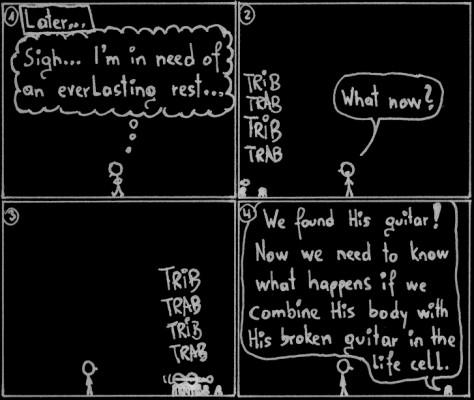 1
Later...
Sigh... I'm in need of
an everlasting rest...
2
TRiB
TRAB
TRIB
TRAB
What now?
3
TRiB
TRAB
TRiB
TRAB
4
We found His guitar!
Now we need to know
what happens if we
combine His body with
His broken guitar in the
life cell.